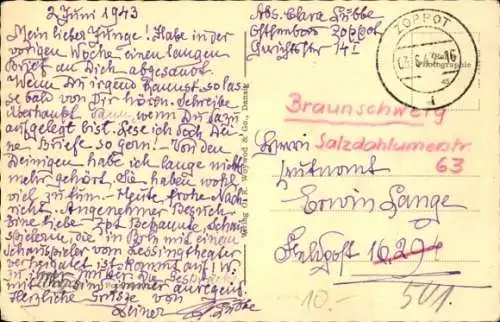 2 Juni 1943
Mein lieber Junge! Habe in der
vorigen Woche einen langen
Brief an Dich abgesandt.
Wenn Du irgend kannst, so lasse
bald von Dir hören. Schreibe
überhaupt dann, wenn Du dazu
aufgelegt bist. Lese ich doch Dei-
ne Briefe so gern! Von den
Deinigen habe ich lange nichts
mehr gehört. Sie haben wohl
viel zu tun. Heute frohe Nach-
richt. Angenehmer Besuch
eine liebe Bekannte, Schau-
spielerin, die in mit einem
Schauspieler vom Lessingtheater
verheiratet ist kommt auf
immer
mit immer anregend.
Herzliche Grüsse von
Deiner
Verlag Gi & Co., Danzig
Abs. Clara Lübbe
Zoppot
14 I
ZOPPOT
Photographie
Braunschweig
Herrn Salzdahlumerstr
63
Leutnant
Erwin Lange
Feldpost
10.- 501.